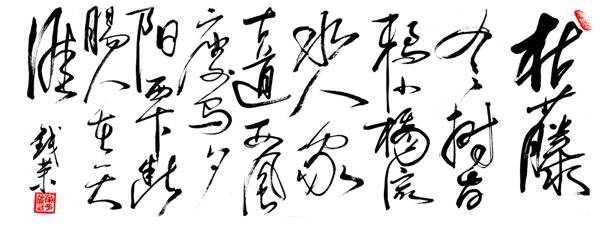 枯藤
老樹昏
鸦小橋流
水人家
古道西風
瘦马夕
阳西下断
腸人在天
涯